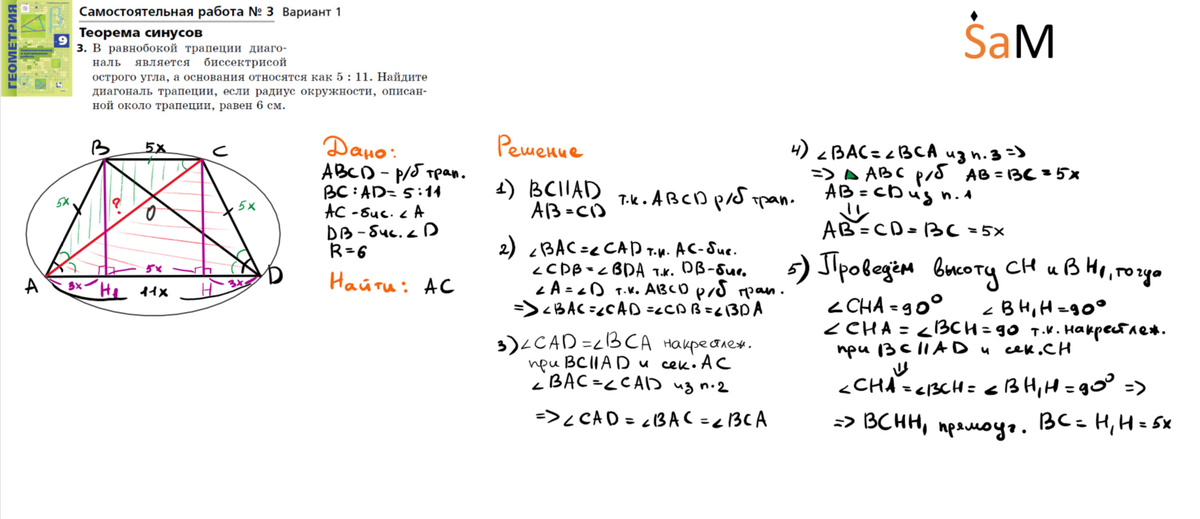 ГЕОМЕТРИЯ
9
Самостоятельная работа № 3 Вариант 1
Теорема синусов
3. В равнобокой трапеции диаго-
наль является биссектрисой
острого угла, а основания относятся как 5 : 11. Найдите
диагональ трапеции, если радиус окружности, описан-
ной около трапеции, равен 6 см.
SaM
B 5x C
5x ? O 5x
A 3x H₁ 5x H 3x D
11x
Дано:
ABCD - р/б трап.
BC:AD = 5:11
AC - бис. ∠A
DB - бис. ∠D
R = 6
Найти: AC
Решение
1) BC||AD
AB = CD т.к. ABCD р/б трап.
2) ∠BAC = ∠CAD т.к. AC - бис.
∠CDB = ∠BDA т.к. DB - бис.
∠A = ∠D т.к. ABCD р/б трап.
=> ∠BAC = ∠CAD = ∠CDB = ∠BDA
3) ∠CAD = ∠BCA накрестлеж.
при BC||AD и сек. AC
∠BAC = ∠CAD из п.2
=> ∠CAD = ∠BAC = ∠BCA
4) ∠BAC = ∠BCA из п.3 =>
=> ABC р/б AB = BC = 5x
AB = CD из п.1
AB = CD = BC = 5x
5) Проведём высоту CH и BH₁, тогда
∠CHA = 90° ∠BH₁H = 90°
∠CHA = ∠BCH = 90 т.к. накрестлеж.
при BC||AD и сек. CH
∠CHA = ∠BCH = ∠BH₁H = 90° =>
=> BCHH₁ прямоуг. BC = H₁H = 5x